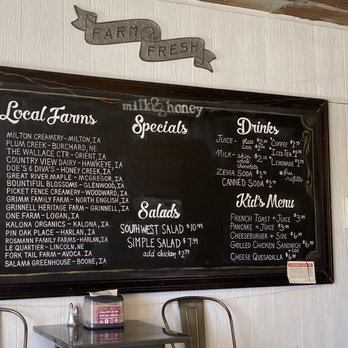 FARM
FRESH
milk & honey
Local Farms
MILTON CREAMERY - MILTON, IA
PLUM CREEK - BURCHARD, NE
THE WALLACE CTR - ORIENT, IA
COUNTRY VIEW DAIRY - HAWKEYE, IA
DOE'S & DIVA'S - HONEY CREEK, IA
GREAT RIVER MAPLE - MCGREGOR, IA
BOUNTIFUL BLOSSOMS - GLENWOOD, IA
PICKET FENCE CREAMERY - WOODWARD, IA
GRIMM FAMILY FARM - NORTH ENGLISH, IA
GRINNELL HERITAGE FARM - GRINNELL, IA
ONE FARM - LOGAN, IA
KALONA ORGANICS - KALONA, IA
PIN OAK PLACE - HARLAN, IA
ROSMANN FAMILY FARMS - HARLAN, IA
LE QUARTIER - LINCOLN, NE
FORK TAIL FARM - AVOCA, IA
SALAMA GREENHOUSE - BOONE, IA
Specials
Salads
SOUTHWEST SALAD $10.99
SIMPLE SALAD $7.99
add chicken $2.99
Drinks
JUICE -
MILK -
ZEVIA SODA
CANNED SODA
*COFFEE
*ICED TEA
LEMONADE
* free refills
Kid's Menu
FRENCH TOAST + JUICE
PANCAKE + JUICE
CHEESEBURGER + SIDE
GRILLED CHICKEN SANDWICH
CHEESE QUESADILLA